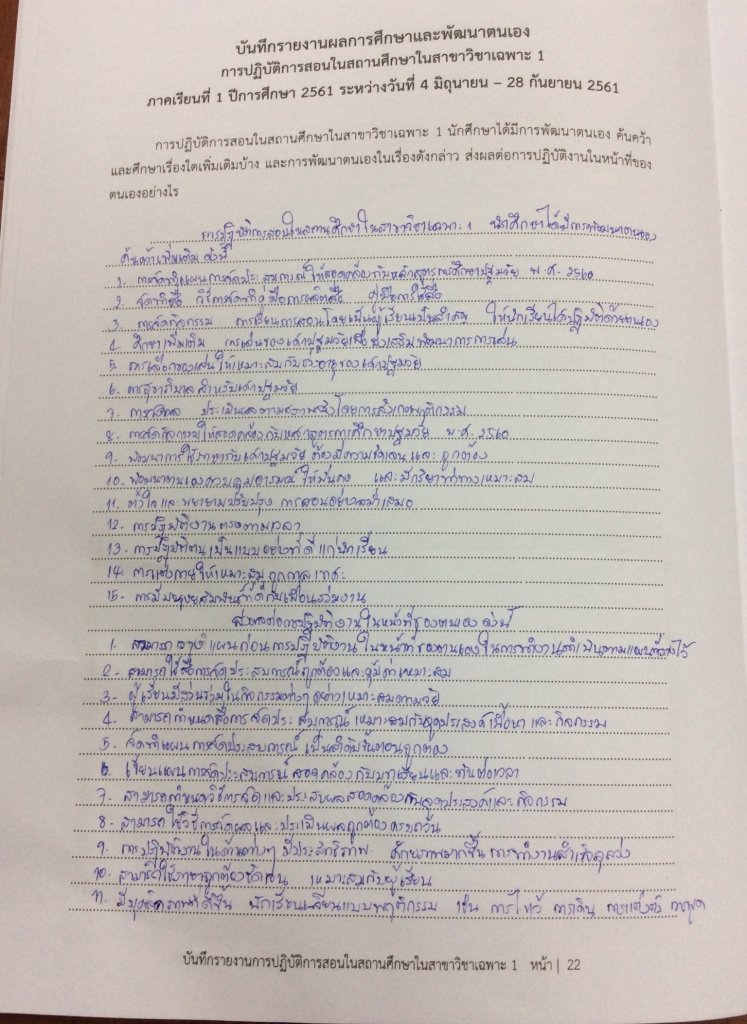 บันทึกรายงานผลการศึกษาและพัฒนาตนเอง
การปฏิบัติการสอนในสถานศึกษาในสาขาวิชาเฉพาะ 1
ภาคเรียนที่ 1 ปีการศึกษา 2561 ระหว่างวันที่ 4 มิถุนายน – 28 กันยายน 2561
การปฏิบัติการสอนในสถานศึกษาในสาขาวิชาเฉพาะ 1 นักศึกษาได้มีการพัฒนาตนเอง ค้นคว้า
และศึกษาเรื่องใดเพิ่มเติมบ้าง และการพัฒนาตนเองในเรื่องดังกล่าว ส่งผลต่อการปฏิบัติงานในหน้าที่ของ
ตนเองอย่างไร
การปฏิบัติการสอนในสถานศึกษาในสาขาวิชาเฉพาะ 1 นักศึกษาได้มีการพัฒนาตนเอง
ค้นคว้าเพิ่มเติม ดังนี้
1. การจัดทำแผนการจัดประสบการณ์ให้สอดคล้องกับหลักสูตรการศึกษาปฐมวัย พ.ศ. 2560
2. จัดทำสื่อ วิธีการจัดทำคู่มือการผลิตสื่อ คู่มือการใช้สื่อ
3. การจัดกิจกรรม การเรียนการสอนโดยเน้นผู้เรียนเป็นสำคัญ ให้นักเรียนได้ปฏิบัติด้วยตนเอง
4. ศึกษาเพิ่มเติม การเล่นของเด็กปฐมวัยเพื่อส่งเสริมพัฒนาการการเล่น
5. การเลือกของเล่นให้เหมาะสมกับช่วงอายุของเด็กปฐมวัย
6. การสุขาภิบาลสำหรับเด็กปฐมวัย
7. การวัดผล ประเมินผลตามสภาพจริงโดยการสังเกตพฤติกรรม
8. การจัดกิจกรรมให้สอดคล้องกับหลักสูตรการศึกษาปฐมวัย พ.ศ. 2560
9. พัฒนาการใช้ภาษากับเด็กปฐมวัย ต้องมีความชัดเจน และ ถูกต้อง
10. พัฒนาตนเองควบคุมอารมณ์ ให้มั่นคง และมีกริยาท่าทางเหมาะสม
11. ตั้งใจและพยายามปรับปรุง การสอนอย่างสม่ำเสมอ
12. การปฏิบัติงานตรงตามเวลา
13. การปฏิบัติตนเป็นแบบอย่างที่ดี แก่นักเรียน
14. การแต่งกายให้เหมาะสม ถูกกาลเทศะ
15. การมีมนุษยสัมพันธ์ที่ดีกับเพื่อนร่วมงาน
ส่งผลต่อการปฏิบัติงานในหน้าที่ของตนเอง ดังนี้
1. สามารถวางแผนก่อนการปฏิบัติงาน ในหน้าที่ของตนเองในการทำงานดำเนินตามแผนที่วางไว้
2. สามารถใช้สื่อการจัดประสบการณ์ถูกต้องและคุ้มค่าเหมาะสม
3. ผู้เรียนมีส่วนร่วมในกิจกรรมต่างๆ อย่างเหมาะสมตามวัย
4. สามารถกำหนดสื่อการจัดประสบการณ์ เหมาะสมกับจุดประสงค์ เนื้อหา และ กิจกรรม
5. จัดทำแผนการจัดประสบการณ์ เป็นลำดับขั้นตอนถูกต้อง
6. เขียนแผนการจัดประสบการณ์ สอดคล้องกับบทเรียนและทันต่อเวลา
7. สามารถกำหนดวิธีการวัดและประเมินผลสอดคล้องกับจุดประสงค์และกิจกรรม
8. สามารถใช้วิธีการวัดผลและประเมินผลถูกต้องครบถ้วน
9. การปฏิบัติงานในด้านต่างๆ มีประสิทธิภาพ ศักยภาพมากขึ้น การทำงานสำเร็จลุล่วง
10. สามารถใช้ภาษาถูกต้องชัดเจน เหมาะสมกับผู้เรียน
11. มีบุคลิกภาพที่ดีขึ้น นักเรียนเลียนแบบพฤติกรรม เช่น การไหว้ การเดิน การแต่งตัว การพูด
บันทึกรายงานการปฏิบัติการสอนในสถานศึกษาในสาขาวิชาเฉพาะ 1 หน้า | 22